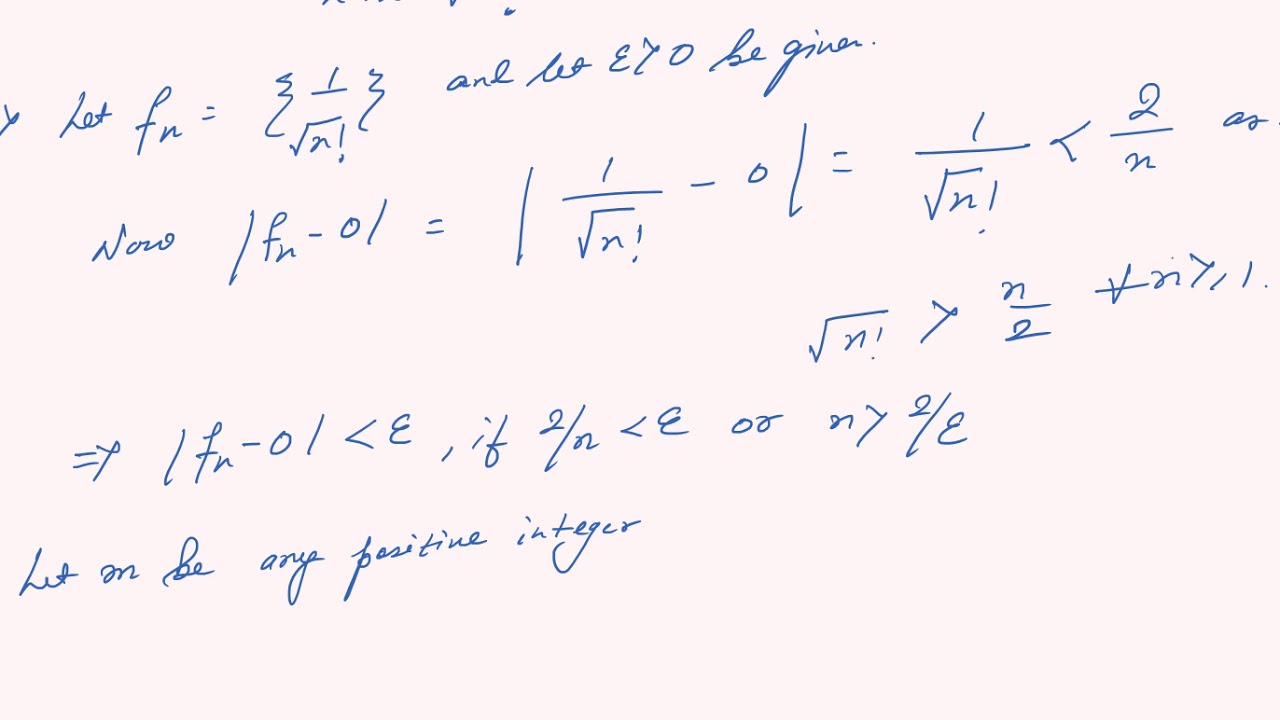 Let fn = {1/√n!} and let ε>0 be given.
Now |fn - 0| = |1/√n! - 0| = 1/√n! < 2/n as
√n! > n/2 ∀ n ≥ 1.
⇒ |fn - 0| < ε, if 2/n < ε or n > 2/ε
Let m be any positive integer